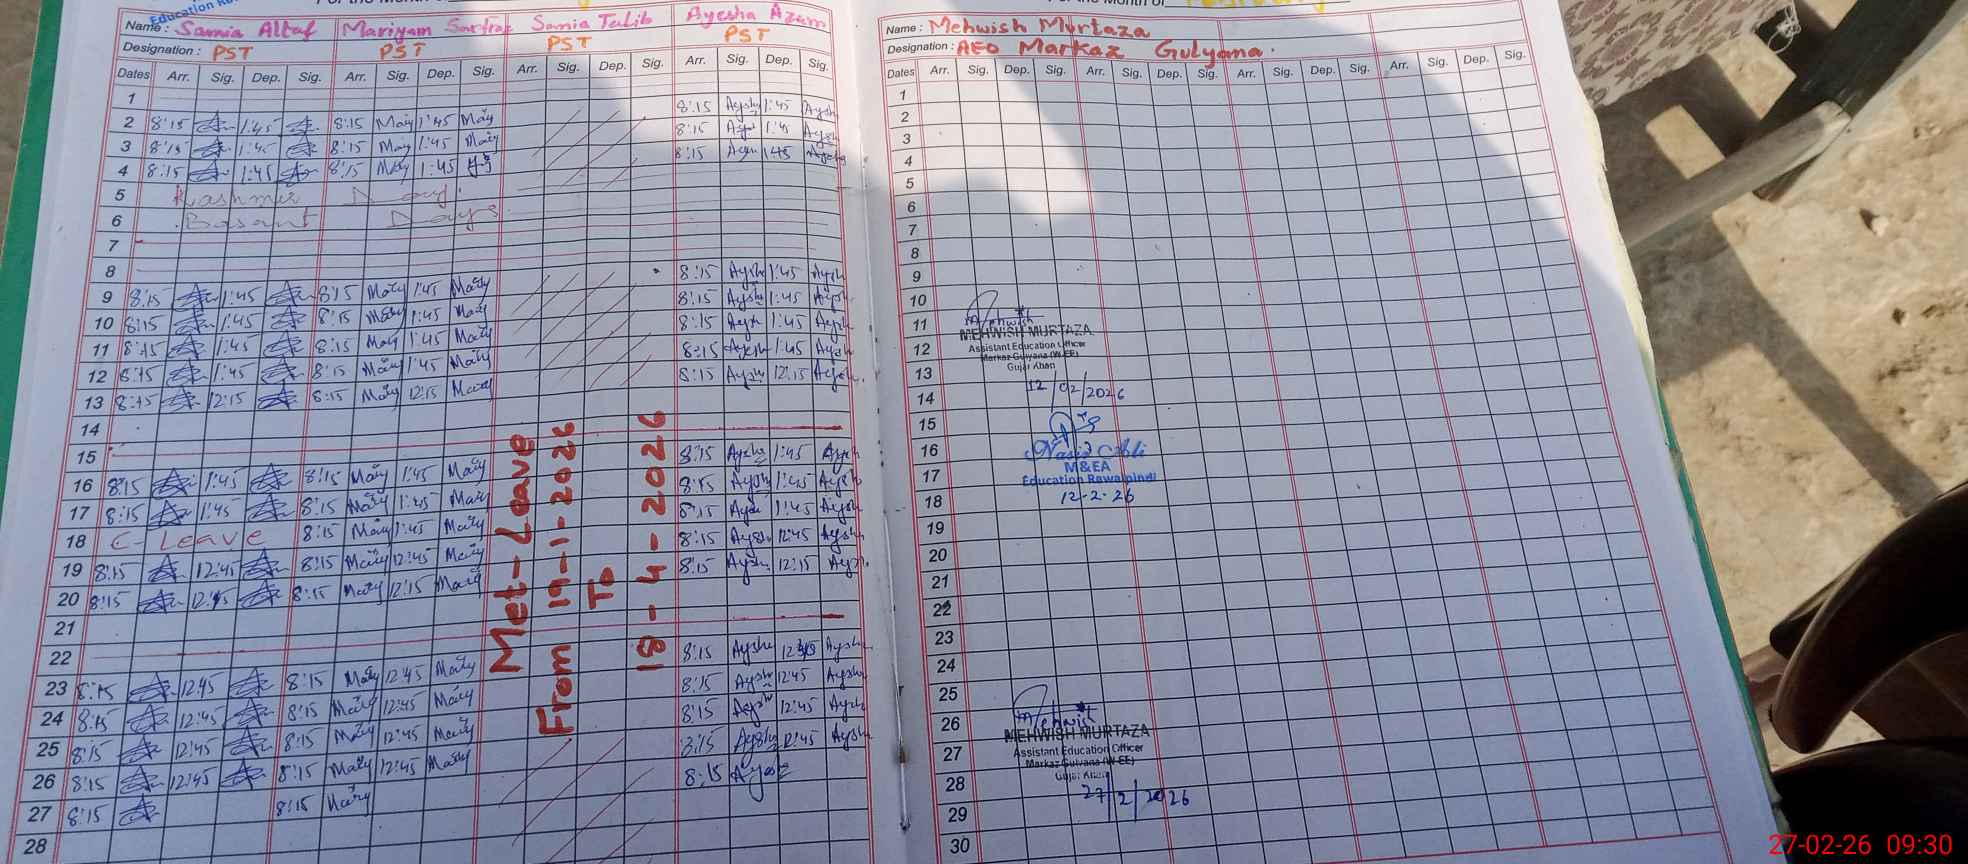 Education Rawalpindi
For the Month of
Name : Samia Altaf Mariyam Sarfraz Samia Talib Ayesha Azam
Designation : PST PST PST PST
Dates Arr. Sig. Dep. Sig. Arr. Sig. Dep. Sig. Arr. Sig. Dep. Sig. Arr. Sig. Dep. Sig.
1
2 8:15 1:45 8:15 Mariy 1:45 Mariy 8:15 Aysha 1:45 Aysha
3 8:15 1:45 8:15 Mariy 1:45 Mariy 8:15 Aysha 1:45 Aysha
4 8:15 1:45 8:15 Mariy 1:45 8:15 Aysha 1:45 Aysha
5 Kashmir Day.
6 Basant Days.
7
8
9 8:15 1:45 8:15 Mariy 1:45 Mariy 8:15 Aysha 1:45 Aysha
10 8:15 1:45 8:15 Mariy 1:45 Mariy 8:15 Aysha 1:45 Aysha
11 8:15 1:45 8:15 Mariy 1:45 Mariy 8:15 Aysha 1:45 Aysha
12 8:15 1:45 8:15 Mariy 1:45 Mariy 8:15 Aysha 1:45 Aysha
13 8:15 12:15 8:15 Mariy 12:15 Mariy 8:15 Aysha 12:15 Aysha
14
15
16 8:15 1:45 8:15 Mariy 1:45 Mariy 8:15 Aysha 1:45 Aysha
17 8:15 1:45 8:15 Mariy 1:45 Mariy 8:15 Aysha 1:45 Aysha
18 C-Leave 8:15 Mariy 1:45 Mariy 8:15 Aysha 1:45 Aysha
19 8:15 12:45 8:15 Mariy 12:45 Mariy 8:15 Aysha 12:45 Aysha
20 8:15 8:15 Mariy 12:15 Mariy 8:15 Aysha 12:15 Aysha
21
22
23 8:15 12:45 8:15 Mariy 12:45 Mariy 8:15 Aysha Aysha
24 8:15 12:45 8:15 Mariy 12:45 Mariy 8:15 Aysha 12:45 Aysha
25 8:15 12:45 8:15 Mariy 12:45 Mariy 8:15 Aysha 12:45 Aysha
26 8:15 12:45 8:15 Mariy 12:45 Mariy 8:15 Aysha 12:45 Aysha
27 8:15 8:15 Mariy 8:15 Aysha
28
Met-Leave
From 19-1-2026
To
18-4-2026
For the Month of February
Name : Mehwish Murtaza
Designation : AEO Markaz Gulyana.
Dates Arr. Sig. Dep. Sig. Arr. Sig. Dep. Sig. Arr. Sig. Dep. Sig. Arr. Sig. Dep. Sig.
1
2
3
4
5
6
7
8
9
10
11 Mehwish
MEHWISH MURTAZA
12 Assistant Education Officer
Markaz Gulyana (W-EE)
13 Gujar Khan
14 12/02/2026
15
16 Nasir Ali
17 M&EA
Education Rawalpindi
18 12-2-26
19
20
21
22
23
24
25
26 Mehwish
MEHWISH MURTAZA
27 Assistant Education Officer
Markaz Gulyana (W-EE)
28 Gujar Khan
27/2/2026
29
30
27-02-26 09:30